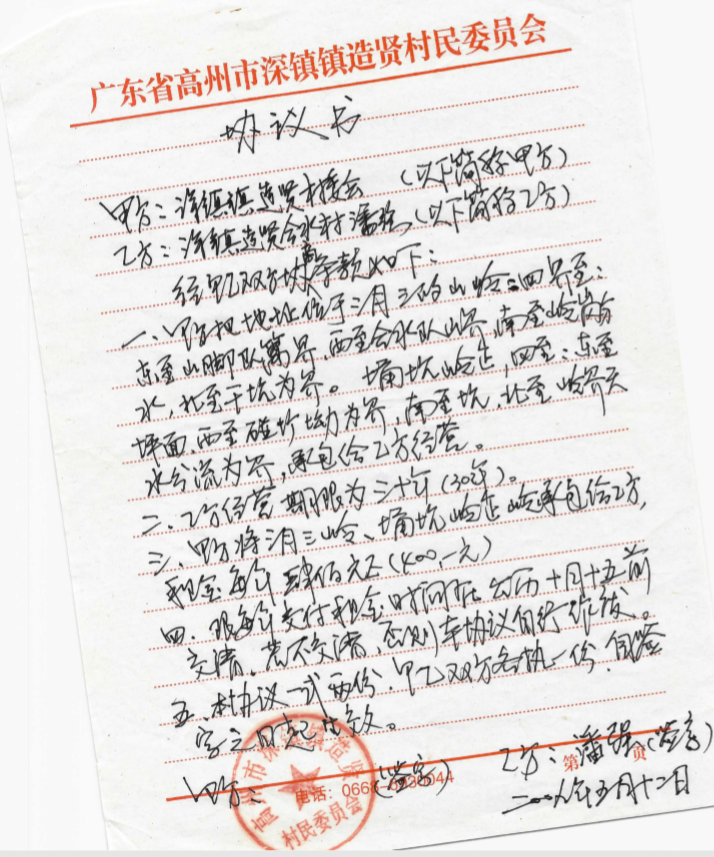 广东省高州市深镇镇造贤村民委员会
协议书
甲方：深镇镇造贤村委会 （以下简称甲方）
乙方：深镇镇造贤合水村潘强，（以下简称乙方）
经甲乙双方条款如下：
一、甲方把地址位于三月三的山岭：四界至：
东至山脚队离界，西至合水队山界，南至岭岗分
水，北至干坑为界。坑岭，四至：东至
坪面，西至为界，南至坑，北至岭天
水分流为界，承包给乙方经营。
二、乙方经营期限为三十年（30年）。
三、甲方将三月三岭、坑岭承包给乙方，
租金每年肆佰元正（400.一元）
四、限每年交付租金时间在公历十月十五前
交清。若不交清，否则本协议自行作废。
五、本协议一式两份，甲乙双方各执一份，自签
字之日起生效。
甲方： （签字）
乙方：潘强（签字）
二00九年五月十二日
第 页
电话：066
高州市深镇镇造贤
村民委员会